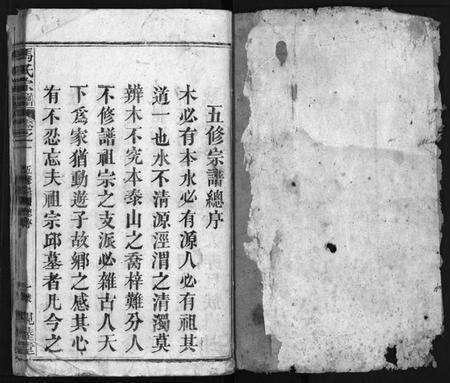 五修宗譜總序
木必有本水必有源人必有祖其
道一也水不清源涇渭之清濁莫
辨木不究本泰山之喬梓難分人
不修譜祖宗之支派必雜古人天
下爲家猶動遊子故鄉之感其心
有不忍忘夫祖宗邱墓者凡今之
馮氏宗譜